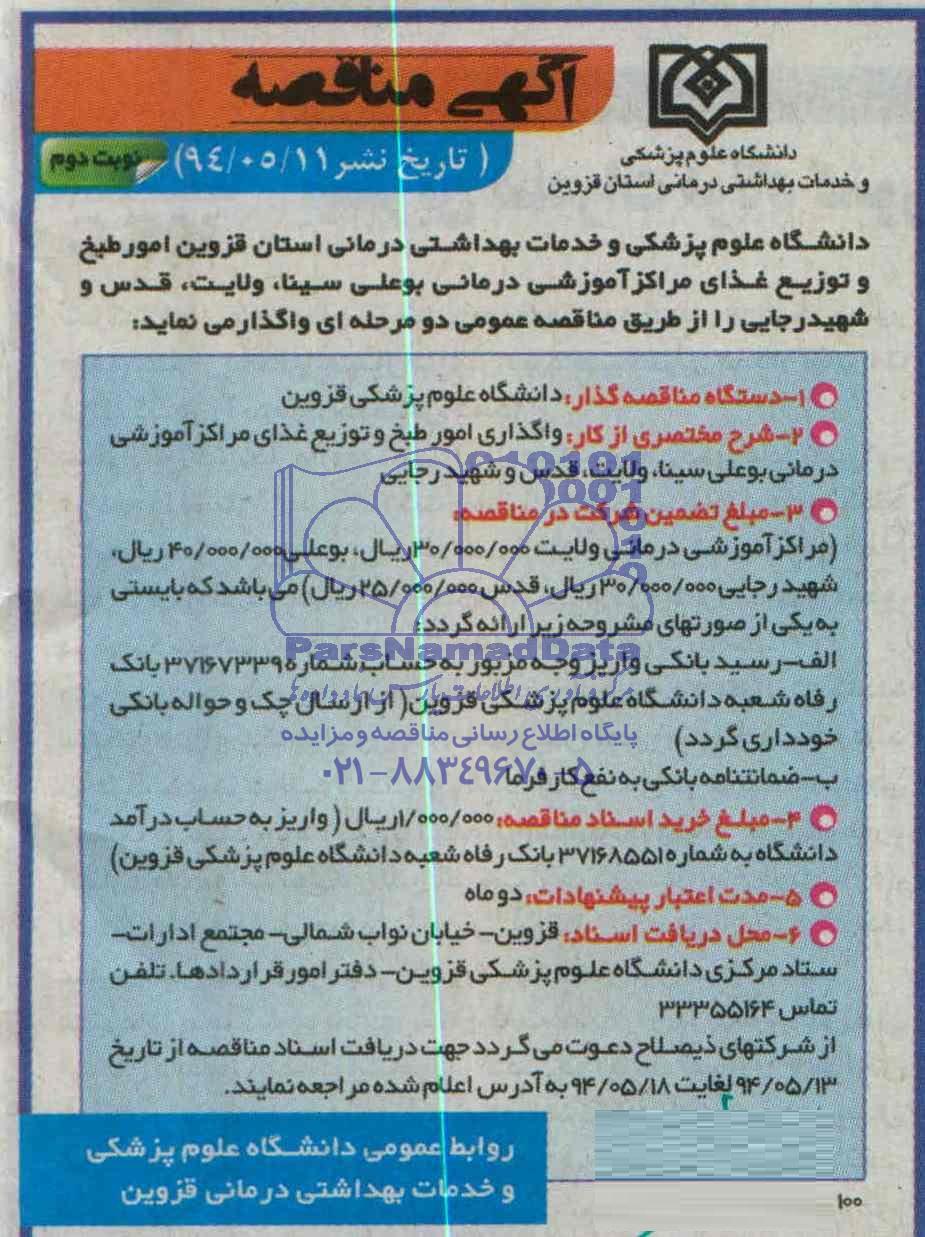 آگهی مناقصه
دانشگاه علوم پزشکی
و خدمات بهداشتی درمانی استان قزوین
( تاریخ نشر ۹۴/۰۵/۱۱)
نوبت دوم
دانشگاه علوم پزشکی و خدمات بهداشتی درمانی استان قزوین امور طبخ
و توزیع غذای مراکز آموزشی درمانی بوعلی سینا، ولایت، قدس و
شهید رجایی را از طریق مناقصه عمومی دو مرحله ای واگذار می نماید:
۱-دستگاه مناقصه گذار: دانشگاه علوم پزشکی قزوین
۲-شرح مختصری از کار: واگذاری امور طبخ و توزیع غذای مراکز آموزشی
درمانی بوعلی سینا، ولایت، قدس و شهید رجایی
۳-مبلغ تضمین شرکت در مناقصه:
(مراکز آموزشی درمانی ولایت ۳۰/۰۰۰/۰۰۰ ریال، بوعلی ۴۰/۰۰۰/۰۰۰ ریال،
شهید رجایی ۳۰/۰۰۰/۰۰۰ ریال، قدس ۲۵/۰۰۰/۰۰۰ ریال) می باشد که بایستی
به یکی از صورتهای مشروحه زیر ارائه گردد:
ParsNamadData
الف-رسید بانکی واریز وجه مزبور به حساب شماره ۳۷۱۶۷۳۳۹ بانک
رفاه شعبه دانشگاه علوم پزشکی قزوین( از ارسال چک و حواله بانکی
خودداری گردد)
پایگاه اطلاع رسانی مناقصه و مزایده
ب-ضمانتنامه بانکی به نفع کارفرما
۰۲۱-۸۸۳۴۹۶۷۰-۵
۴-مبلغ خرید اسناد مناقصه: ۱/۰۰۰/۰۰۰ ریال ( واریز به حساب درآمد
دانشگاه به شماره ۳۷۱۶۸۵۵۱ بانک رفاه شعبه دانشگاه علوم پزشکی قزوین)
۵-مدت اعتبار پیشنهادات: دو ماه
۶-محل دریافت اسناد: قزوین- خیابان نواب شمالی- مجتمع ادارات-
ستاد مرکزی دانشگاه علوم پزشکی قزوین- دفتر امور قراردادها. تلفن
تماس ۳۳۳۵۵۱۶۴
از شرکتهای ذیصلاح دعوت می گردد جهت دریافت اسناد مناقصه از تاریخ
۹۴/۰۵/۱۳ لغایت ۹۴/۰۵/۱۸ به آدرس اعلام شده مراجعه نمایند.
روابط عمومی دانشگاه علوم پزشکی
و خدمات بهداشتی درمانی قزوین
۱۰۰